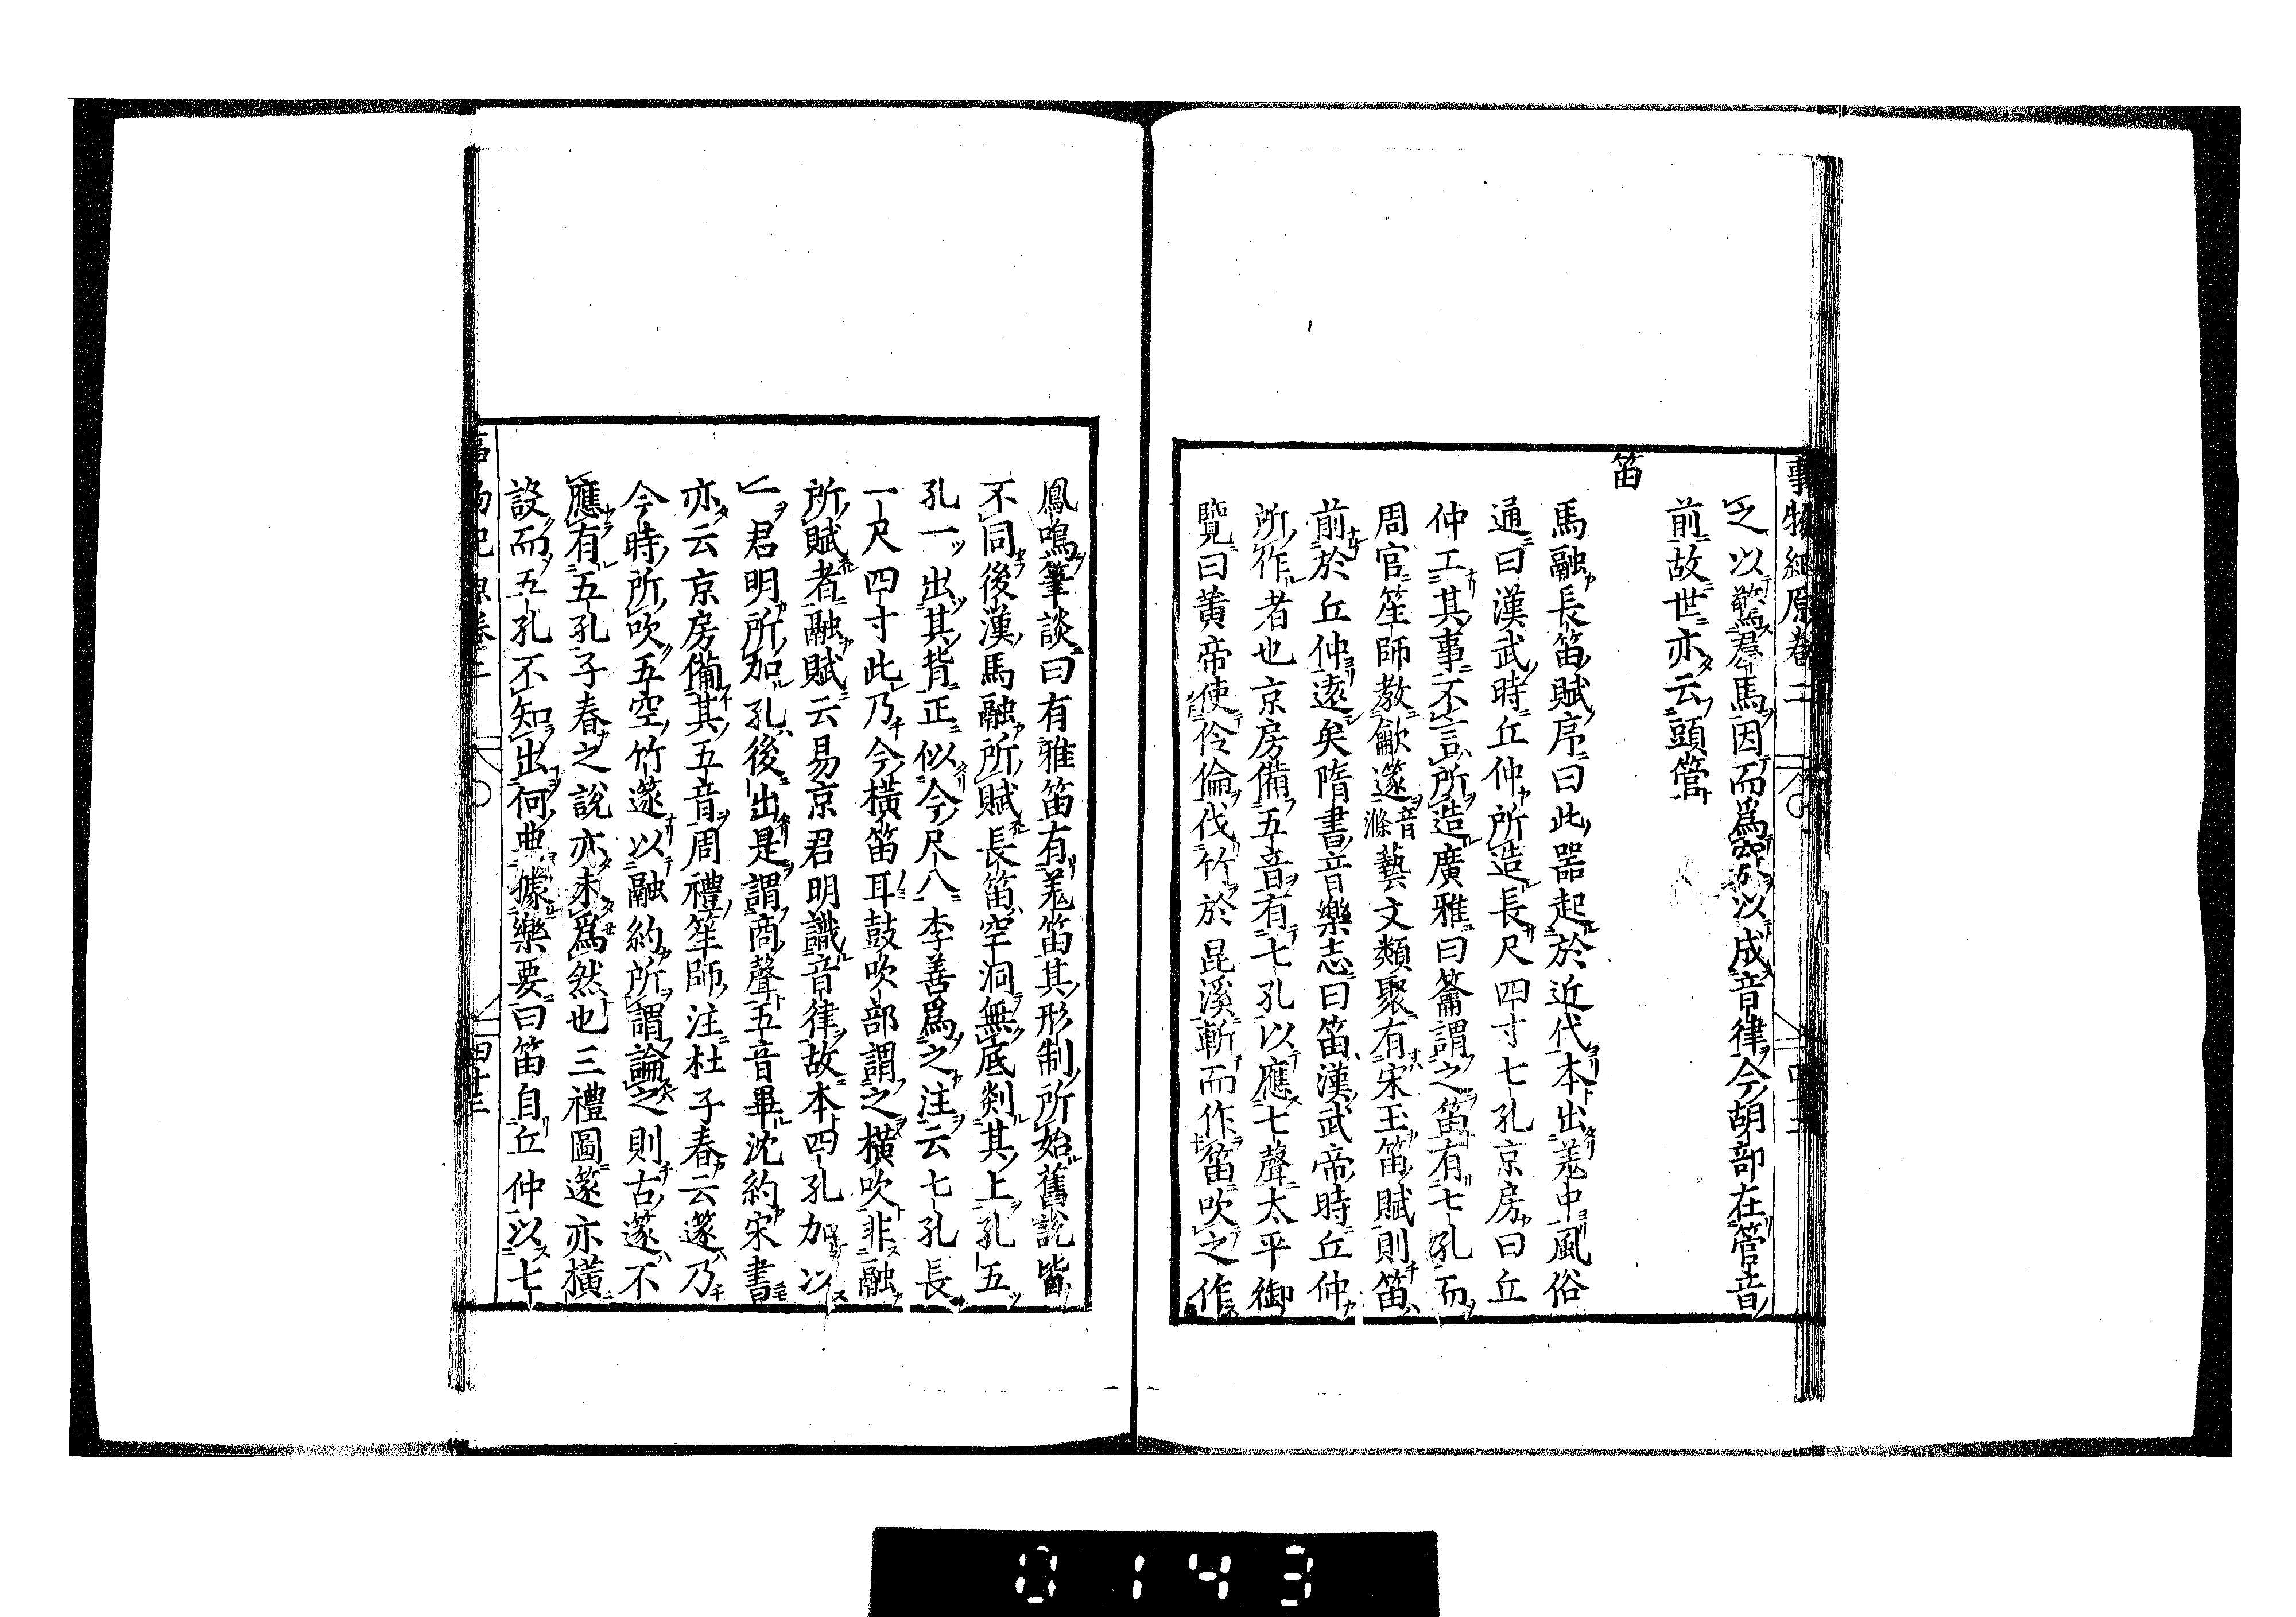 事物紀原卷二
之以驚群馬因而爲竅以成音律今胡部在管音
前故世亦云頭管
笛
馬融長笛賦序曰此器起於近代本出羌中風俗
通曰漢武時丘仲所造長尺四寸七孔京房曰丘
仲工其事不言所造廣雅曰籥謂之笛有七孔而
周官笙師敎龡篴音滌藝文類聚有宋玉笛賦則笛
前於丘仲遠矣隋書音樂志曰笛漢武帝時丘仲
所作者也京房備五音有七孔以應七聲太平御
覽曰黃帝使伶倫伐竹於昆溪斬而作笛吹之作
鳳鳴筆談曰有雅笛有羌笛其形制所始舊說皆
不同後漢馬融所賦長笛空洞無底剡其上孔五
孔一出其背正似今尺八李善爲之注云七孔長
一尺四寸此乃今橫笛耳鼓吹部謂之橫吹非融
所賦者融賦云易京君明識音律故本四孔加以
一君明所加孔後出是謂商聲五音畢沈約宋書
亦云京房備其五音周禮笙師注杜子春云篴乃
今時所吹五空竹篴以融約所謂論之則古篴不
應有五孔子春之說亦未爲然也三禮圖篴亦橫
設而五孔不知出何典據樂要曰笛自丘仲以七
四十三
0143